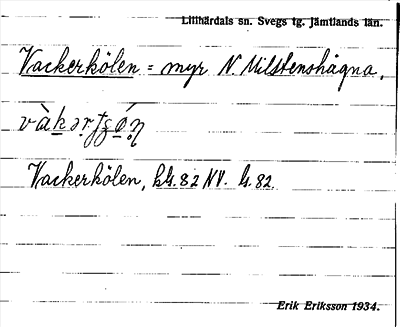 Lillhärdals sn. Svegs tg. Jämtlands län.
Vackerkölen = myr N. Milstenshågna.
Vackerkölen, kbl. 82 NV. b. 82
Erik Eriksson 1934.